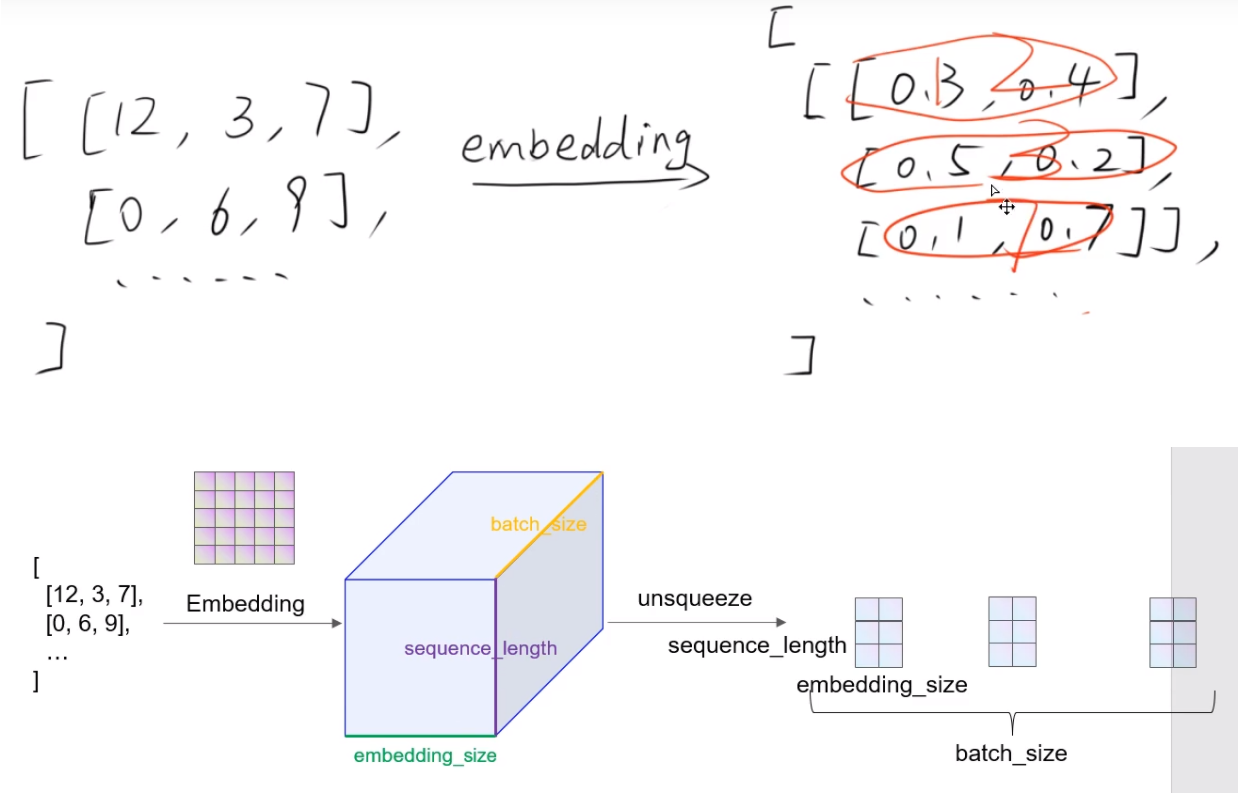 [
[ [12, 3, 7],
[0, 6, 9],
......
]
embedding
[ [ 0.3, 0.4],
[ 0.5, 0.2],
[ 0.1, 0.7] ],
......
]
[
[12, 3, 7],
[0, 6, 9],
...
]
Embedding
batch_size
sequence_length
embedding_size
unsqueeze
sequence_length
embedding_size
batch_size